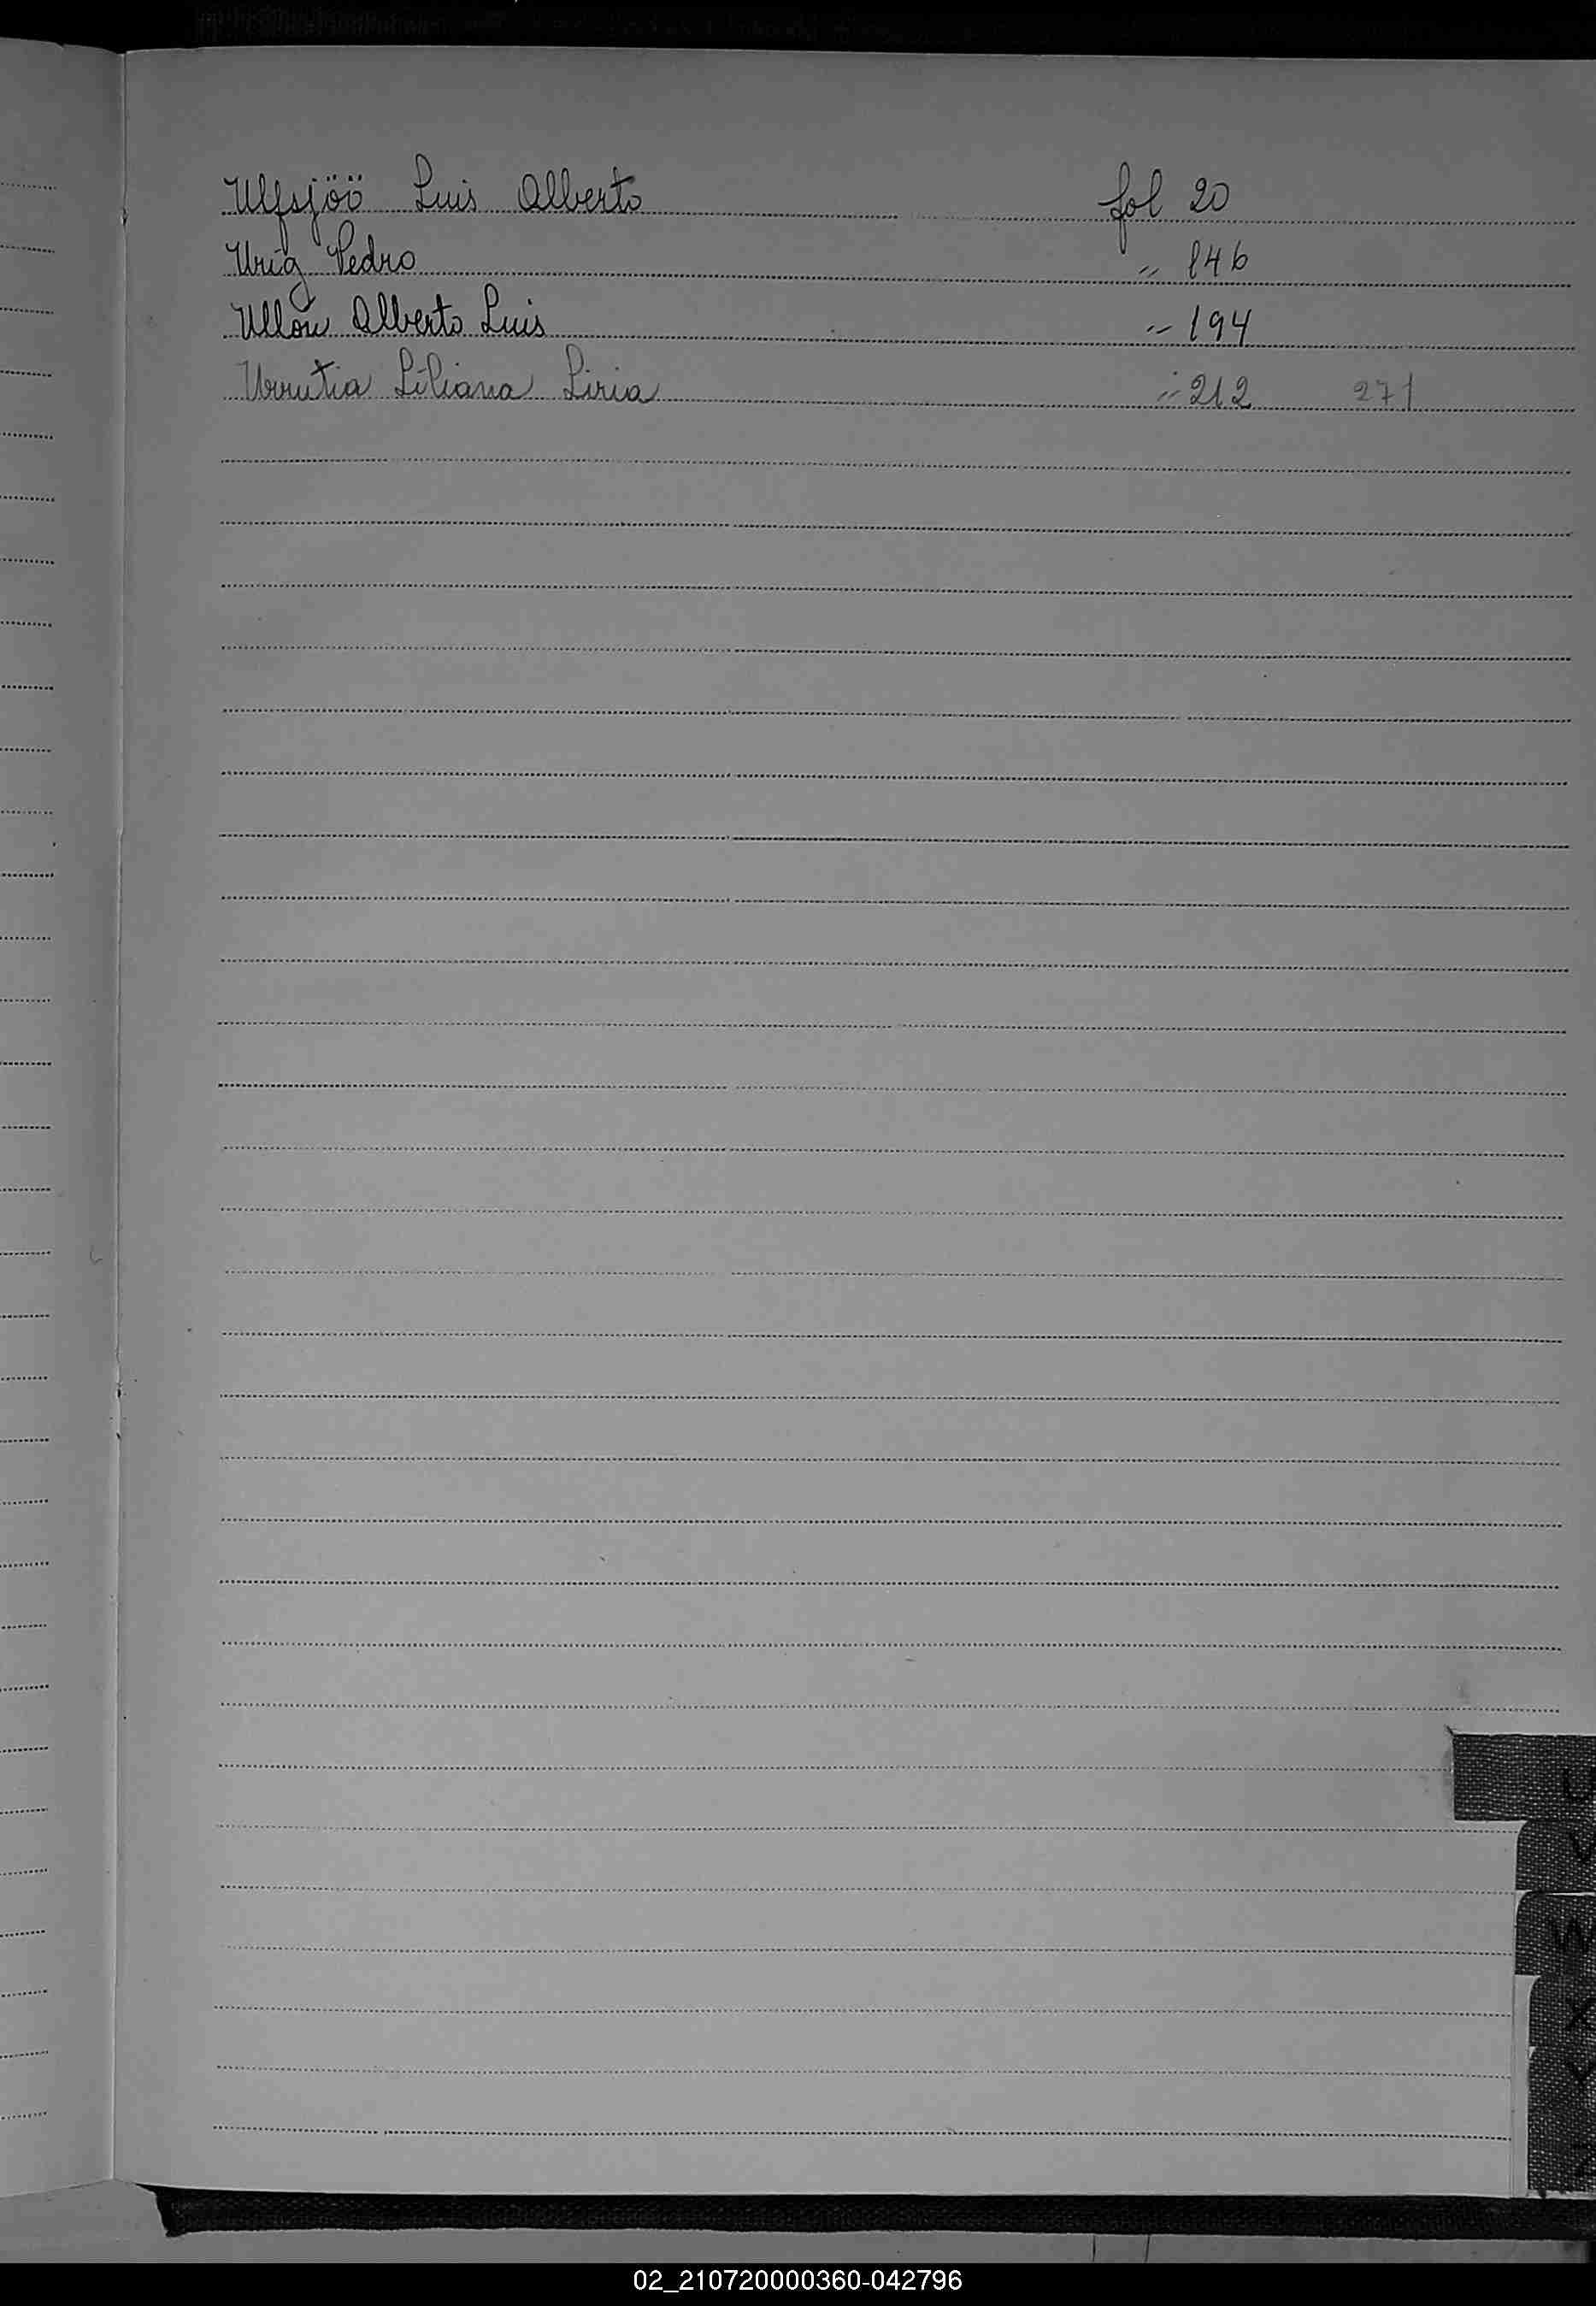 Ulfsjöö Luis Alberto fol 20
Urig Pedro " 146
Ullón Alberto Luis " 194
Urrutia Liliana Liria " 212 271
U
V
W
X
Y
Z
02_210720000360-042796